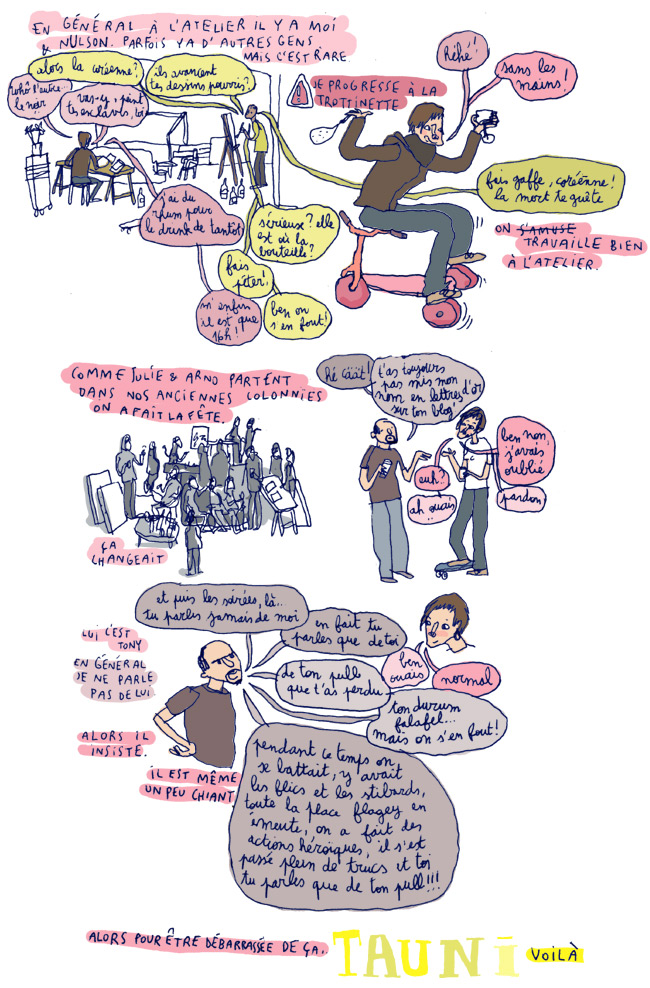 EN GÉNÉRAL À L'ATELIER IL Y A MOI
& NULSON. PARFOIS YA D'AUTRES GENS,
MAIS C'EST RARE
alors la coréenne?
ils avancent
tes dessins pourris?
l'autre...
le noir
vas-y, peint
tes esclaves, toi
j'ai du
rhum pour
le drunk de tantôt
sérieux? elle
est où la
bouteille?
fais
péter!
m'enfin
il est que
16h!
ben on
s'en fout!
JE PROGRESSE À LA
TROTTINETTE
héhé!!
sans les
mains!
fais gaffe, coréenne!
la mort te guête
ON S'AMUSE
TRAVAILLE BIEN
À L'ATELIER.
COMME JULIE & ARNO PARTENT
DANS NOS ANCIENNES COLONNIES
ON A FAIT LA FÊTE.
ÇA
CHANGEAIT
hé cäät!
t'as toujours
pas mis mon
nom en lettres d'or
sur ton blog
euh?
ah ouais
ben non,
j'avais
oublié
pardon
et puis les soirées, là...
tu parles jamais de moi
en fait tu
parles que de toi
LUI C'EST
TONY
EN GÉNÉRAL
JE NE PARLE
PAS DE LUI.
ALORS IL
INSISTE.
IL EST MÊME
UN PEU CHIANT.
ben
ouais
normal
de ton pull
que t'as perdu
ton durum
falafel...
mais on s'en fout!
pendant ce temps on
se battait, y avait
les flics et les stibards,
toute la place flagey en
émeute, on a fait des
actions héroïques, il s'est
passé plein de trucs et toi
tu parles que de ton pull!!!
ALORS POUR ÊTRE DÉBARRASSÉE DE ÇA.
TAUNI
VOILÀ